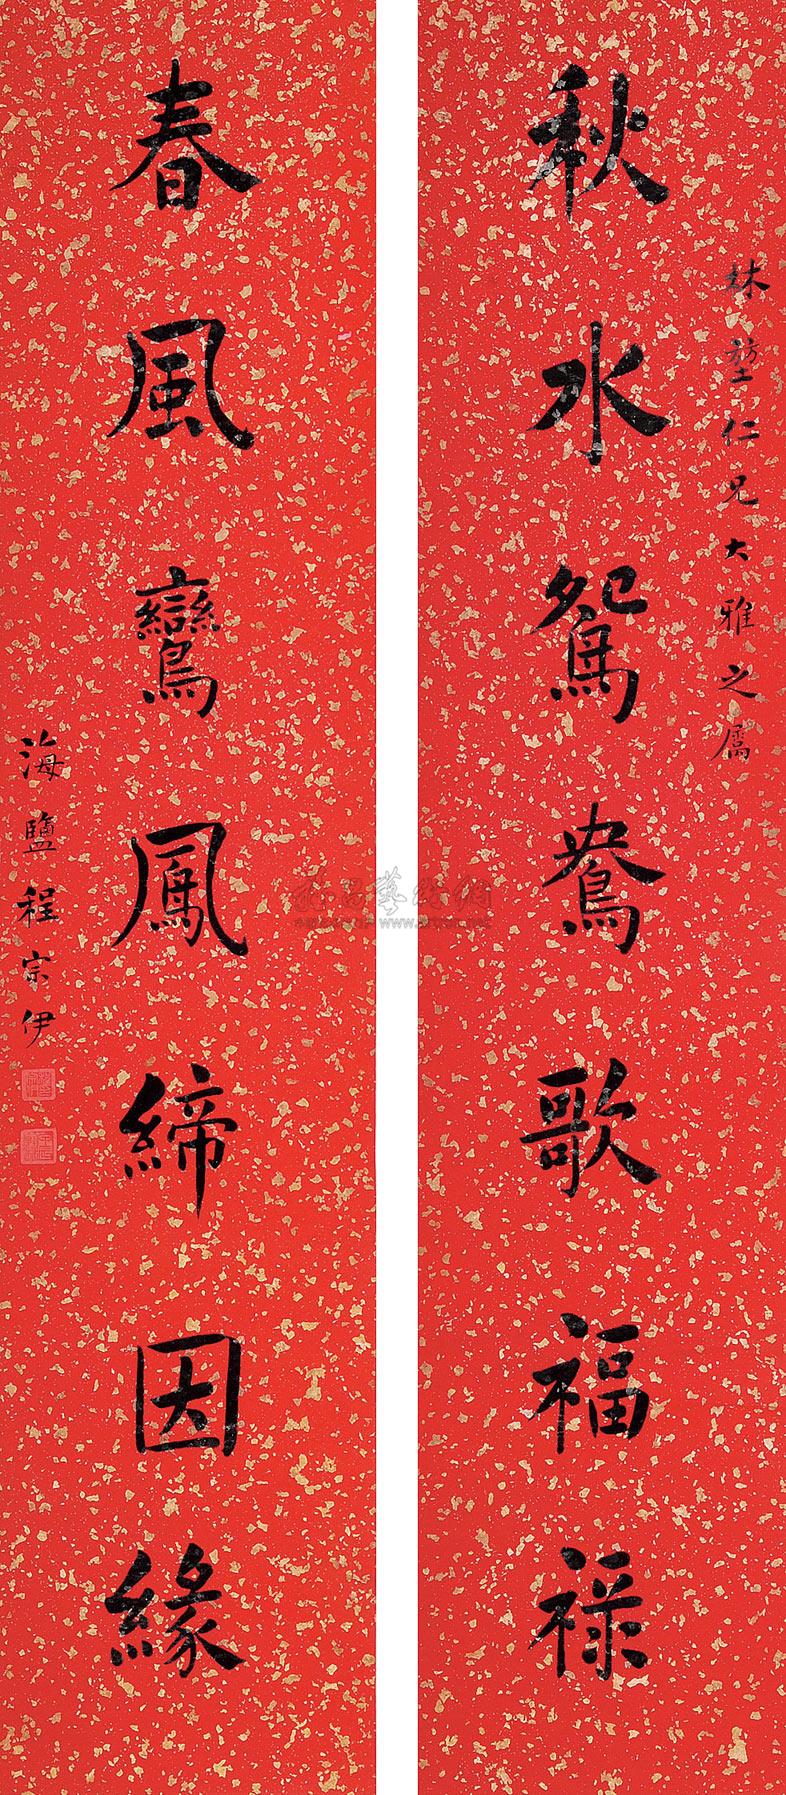 林堃仁兄大雅之属
秋水鴛鴦歌福禄
春風鸞鳳締因緣
海鹽程宗伊
www.artxun.net